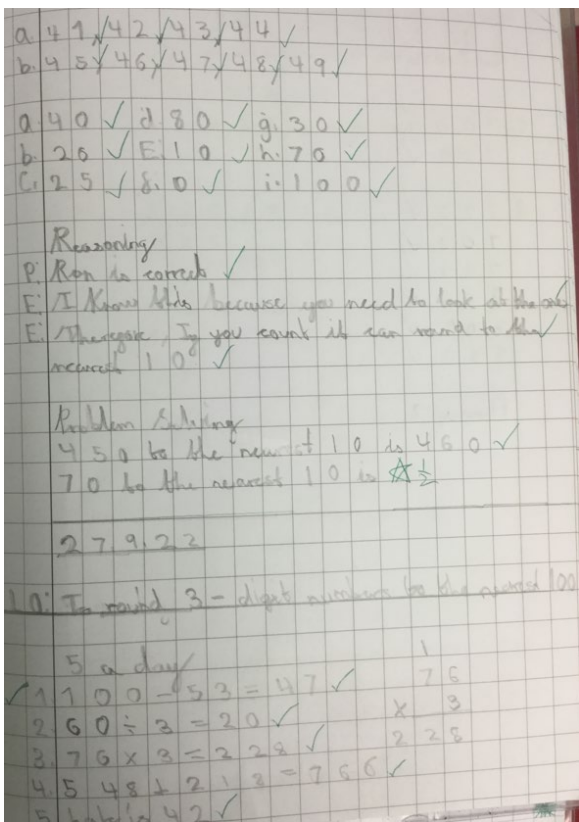 a. 41, 42, 43, 44
b. 45, 46, 47, 48, 49
a. 40 d. 80 g. 30
b. 20 E. 10 h. 70
C. 25 f. 0 i. 100
Reasoning
P: Ron is correct
E: I Know this because you need to look at the ones
E: Therefore, If you count it can round to the
nearest 10
Problem Solving
450 to the nearest 10 is 460
70 to the nearest 10 is
27.9.22
L.O: To round 3-digit numbers to the nearest 100
5 a day
1 100 - 53 = 47
2. 60 ÷ 3 = 20
3. 76 x 3 = 228
4. 548 + 218 = 766
5 42
1
76
x 3
228